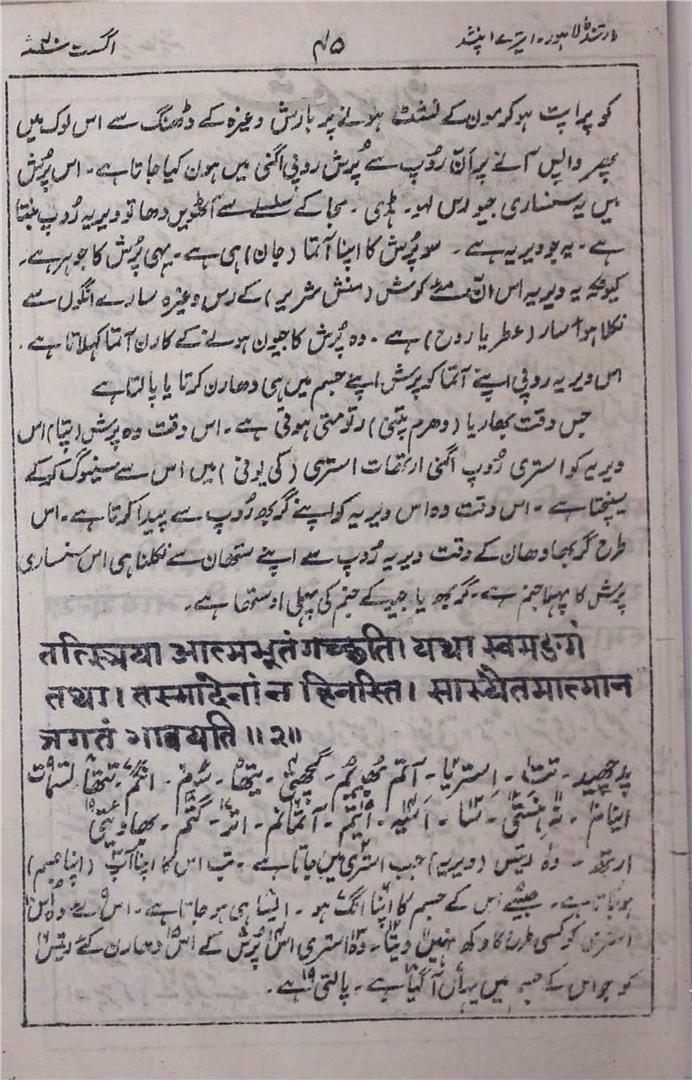 مارتنڈ لاہور۔ ایترے اپنشد ۴۵ اگست
کو پراپت ہو کر مون کے نشٹ ہونے پر بارش وغیرہ کے ڈھنگ سے اس لوک میں
پھر واپس آنے پر اَنّ رُوپ سے پُرش روپی اگنی میں ہون کیا جاتا ہے۔ اس پُرش
میں یہ سنساری جیو رس لہو۔ ہڈی۔ مجا کے سلسلے سے آٹھویں دھاتو ویریہ رُوپ بنتا
ہے۔ یہ جو ویریہ ہے۔ سو پُرش کا اپنا آتما (جان) ہی ہے۔ یہی پُرش کا جوہر ہے۔
کیونکہ یہ ویریہ اس انّ مئے کوش (منش شریر) کے رس وغیرہ سارے انگوں سے
نکلا ہوا سار (عطر یا روح) ہے۔ وہ پُرش کا جیون ہونے کے کارن آتما کہلاتا ہے۔
اس ویریہ روپی اپنے آتما کو پُرش اپنے جسم میں ہی دھارن کرتا یا پالتا ہے
جس وقت بھاریا (دھرم پتنی) رتومتی ہوتی ہے۔ اس وقت وہ پرش (پتا) اس
ویریہ کو استری رُوپ اگنی ارتھات استری (کی یونی) میں اس سے سنیوگ کر کے
سینچتا ہے۔ اس وقت وہ اس ویریہ کو اپنے گربھ رُوپ سے پیدا کرتا ہے۔ اس
طرح گربھادھان کے وقت ویریہ رُوپ سے اپنے ستھان سے نکلنا ہی اس سنساری
پرش کا پہلا جنم ہے۔ گربھ یا جیو کے جنم کی پہلی اوستھا ہے۔
तत्स्त्रिया आत्मभूतं गच्छति। यथा स्वमङ्गं
तथा। तस्मादेनां न हिनस्ति। सास्यैतमात्मान
त्रगतं भावयति॥२॥
پدچھید۔ تت۔ استریا۔ آتم بھوتم۔ گچھتی۔ یتھا۔ سوم۔ انگم۔ تتھا تسمات
اینام۔ نہ ہنستی۔ سا۔ اسیہ۔ ایتم۔ آتمانم۔ اتر۔ گتم۔ بھاویتی
ارتھ۔ وہ ریتس (ویریہ) جب استری میں جاتا ہے۔ تب اس کا اپنا آپ (اپنا جسم)
ہو جاتا ہے۔ جیسے اس کے جسم کا اپنا انگ ہو۔ ایسا ہی ہو جاتا ہے۔ اس لئے وہ اس
استری کو کسی طرح کا دکھ نہیں دیتا۔ وہ استری اس پُرش کے اس دھارن کئے ریتس
کو جو اس کے جسم میں یہاں آ گیا ہے۔ پالتی ہے۔